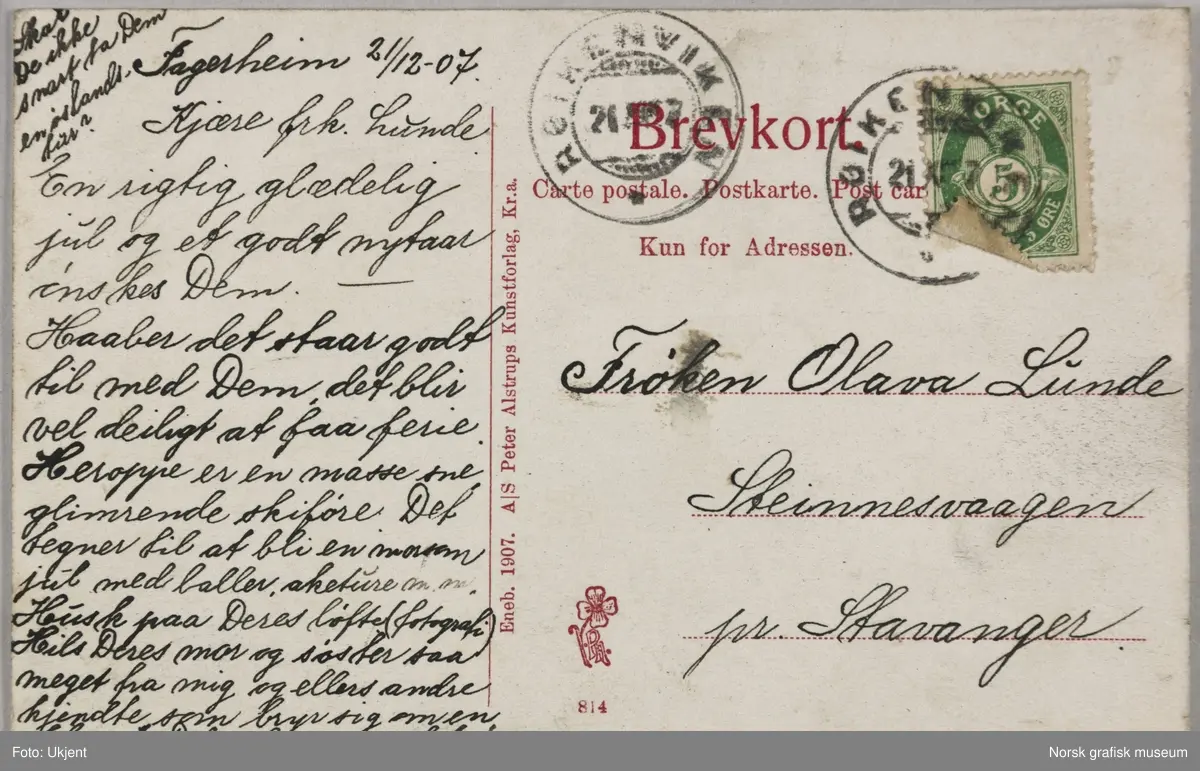 Skal
De ikke
snart ha Dem
en islands-
tur?
Fagerheim 21/12-07.
Kjære frk. Lunde
En rigtig glædelig
jul og et godt nytaar
önskes Dem. —
Haaber det staar godt
til med Dem, det blir
vel deiligt at faa ferie.
Heroppe er en masse sne,
glimrende skiføre. Det
tegner til at bli en morsom
jul med baller, aketure m.m.
Husk paa Deres løfte (fotografi)
Hils Deres mor og søster saa
meget fra mig og ellers andre
kjendte, som bryr sig om en
Eneb. 1907. A|S Peter Alstrups Kunstforlag, Kr.a.
RØIKENVIKEN
21 XII 07
Brevkort.
Carte postale. Postkarte. Post car
Kun for Adressen.
RØIKENVIKEN
21 XII 7
NORGE
5
5 ØRE
Frøken Olava Lunde
Steinnesvaagen
pr. Stavanger
814
Foto: Ukjent
Norsk grafisk museum